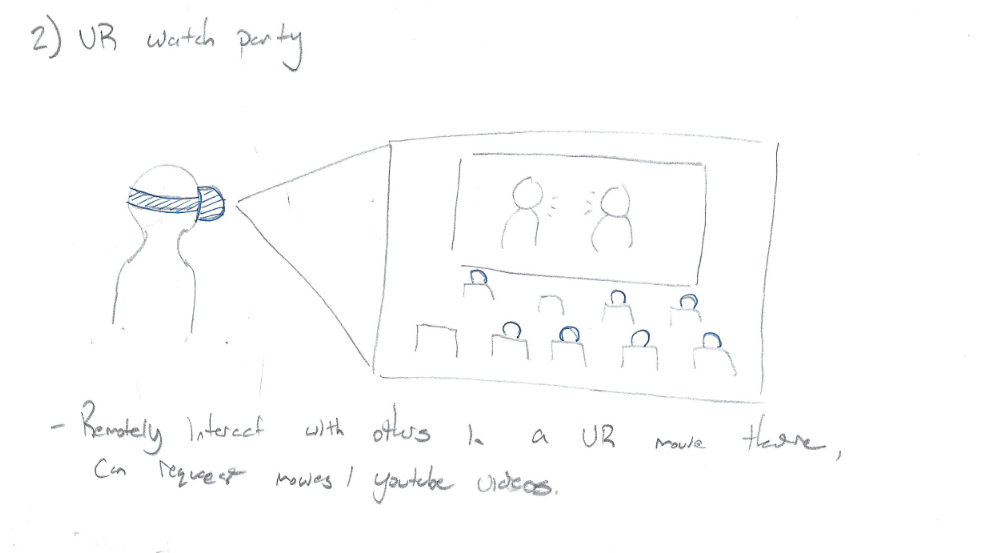 2) VR watch party
- Remotely interact with others in a VR movie theatre,
Can request movies / youtube videos.